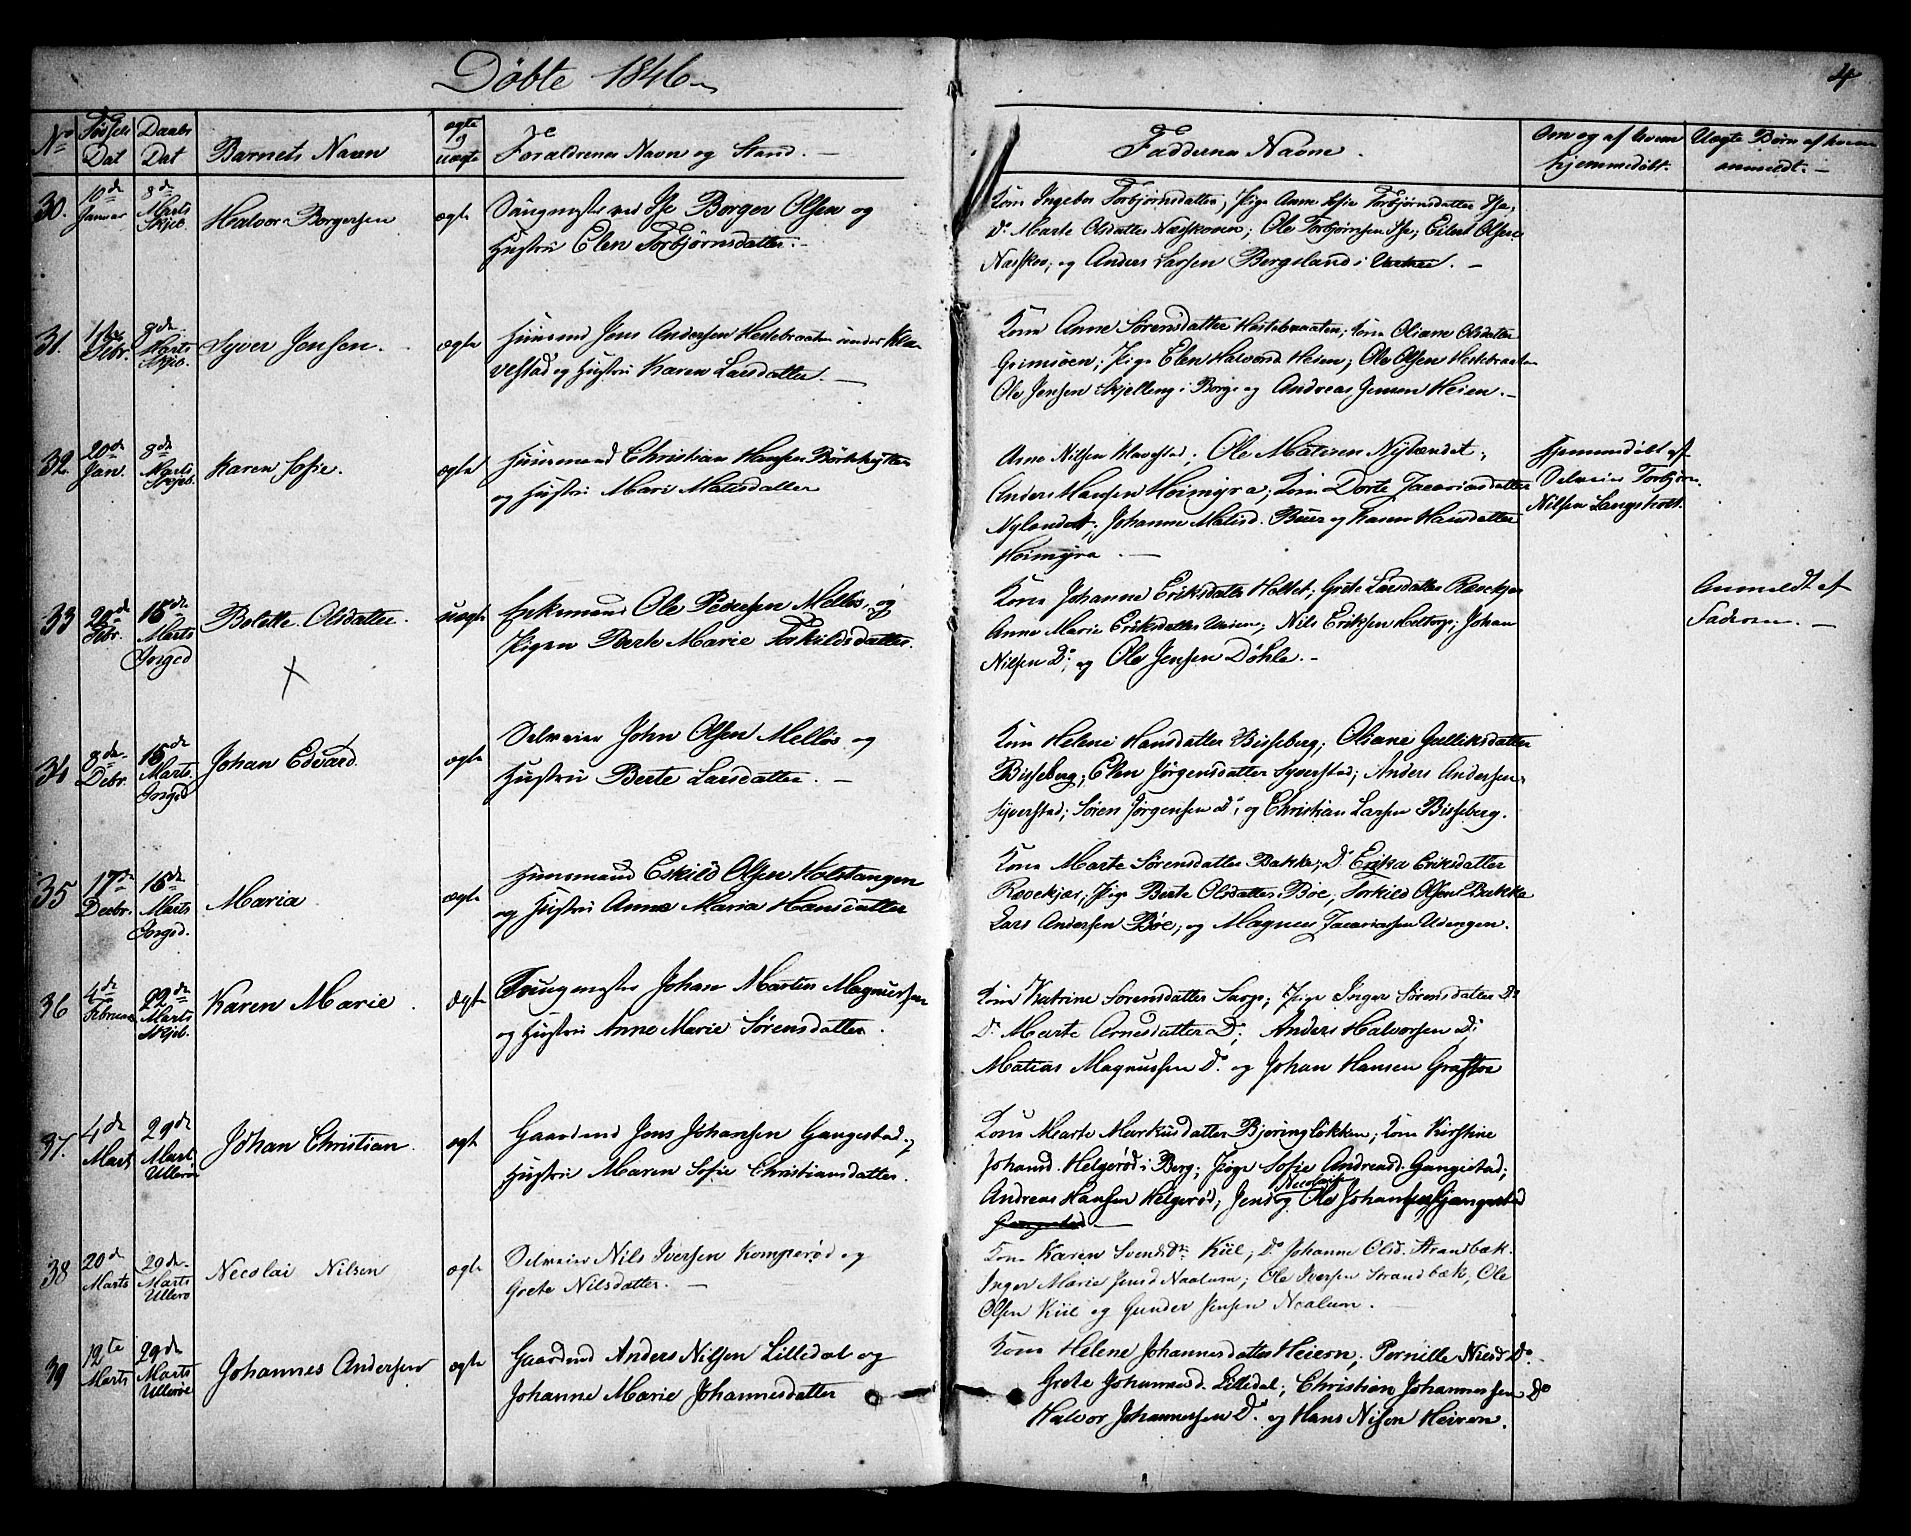 Döbte 1846
4
No
Fødsels Dat
Daabs Dat
Barnets Navn
ægte og uægte
Forældrenes Navn og Stand. —
Faddernes Navne.
Om og af hvem hjemmedöbt.
Uægte Børn af hvem anmeldt. —
30.
10de Januar
8de Marts Skjeb.
Halvor Borgersen
ægte
Borger Olsen og
Hustru Elen Torbjørnsdatter. —
Kone Ingebor Torbjørnsdatter, Pige Anne Sofie Torbjørnsdatter
Do Marte Olsdatter Næsskoven; Ole Torbjørnsen Ise; Eilert Olsen
Næsskov; og Anders Larsen Bergsland i Varteig. —
31.
1ste Debr.
8de Marts Skjeb.
Syver Jensen.
ægte
Huusmd Jens Andersen Hestebraaten under Kla-
vestad og Hustru Karen Larsdatter. —
Kone Anne Sörensdatter Hestebraaten; Kone Oliane Olsdatter
Grimsöen; Pige Elen Halvorsd. Heien; Ole Olsen Hestebraaten
Ole Jensen Skjelleng i Borge og Andreas Jensen Heien. —
32.
20de Jan.
8de Marts Skjeb.
Karen Sofie.
ægte
Huusmand Christian Hansen Börkhytten
og Hustru Mari Mattisdatter
Arne Nilsen Klavestad; Ole Matesen Nylændet;
Anders Hansen Höimyra; Kone Dorte Jacariasdatter
Nylændet; Johanne Matisd. Buer og Karen Hansdatter
Höimyra. —
Hjemmedöbt af
Selveier Torbjörn
Nilsen Langsholt.
33
20de Febr.
15de Marts Ingedal
Bolette Olsdatter.
uægte
Enkemand Ole Pedersen Mellös, og
Pigen Berte Marie Torkildsdatter.
Kone Johanne Eriksdatter Holtet; Grete Larsdatter Rævekjær
Anne Marie Eriksdatter Veien; Nils Eriksen Heltorp; Johan
Nilsen Do, og Ole Jensen Döhle. —
Anmeldt af
Faderen. —
34
8de Debr.
15de Marts Ingedal
Johan Edvard.
ægte
Selveier John Olsen Mellös og
Hustru Berte Larsdatter. —
Kone Helene Hansdatter Bisseberg; Oliane Gulliksdatter
Bisseberg; Elen Jörgensdatter Syverstad; Anders Andersen
Syverstad; Sören Jörgensen Do, og Christian Larsen Bisseberg.
35
17de Decbr.
15de Marts Ingedal.
Maria
ægte
Huusmand Eskild Olsen Holstangen
og Hustru Anne Maria Hansdatter
Kone Marte Sörensdatter Bakke; Do Erika Eriksdatter
Rævekjær, Pige Berte Olsdatter Böe, Torkild Olsen Bakke
Lars Andersen Böe, og Magnus Jacariassen Udengen.
36
4de Februar
22de Marts Skjeb.
Karen Marie
ægte
Johan Martin Magnussen
og Hustru Anne Marie Sörensdatter.
Kone Katrine Sorensdatter Sarp; Pige Inger Sörensdatter Do
Do Marte Arnesdatter Do; Anders Halvorsen Do;
Matias Magnussen Do og Johan Hansen
37.
4de Marts
29de Marts Ulleröe
Johan Christian.
ægte
Gaardmd Jens Johansen Gangestad og
Hustru Maren Sofie Christiansdatter.
Kone Marte Markusdatter Björinglökken; Kone Kirstine
Johansd. Helgeröd i Berg; Pige Sofie Andreasd. Gangestad;
Andreas Hansen Helgeröd; Jens Nicolaisen og Ole Johansen Gjangestad
38
20de Marts
29de Marts Ulleröe
Necolai Nilsen
ægte
Selveier Nils Iversen Kamperöd og
Grete Nilsdatter. —
Kone Karen Svendsdtr Kiil; Do Johanne Olsd. Strandbæk.
Inger Marie Jensd Naalum; Ole Iversen Strandbæk, Ole
Olsen Kiil og Gunder Jensen Naalum. —
39
12te Marts
29de Marts Ulleröe
Johannes Andersen
ægte
Gaardmd Anders Nilsen Lilledal og
Johanne Marie Johannesdatter
Kone Helene Johannesdatter Heieren; Pernille Nilsd Do.
Grete Johannesd. Lilledal; Christian Johannessen Do
Halvor Johannessen Do. og Hans Nilsen Heieren.